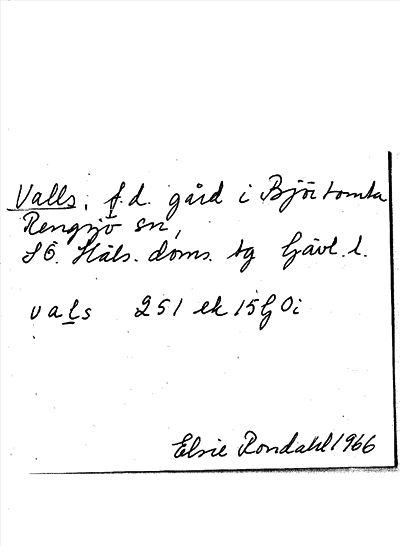 Valls, f.d. gård i Björtomta
Rengsjö sn,
SÖ. Häls. doms. tg Gävl. l.
vals 251 ek 15G Oi
Elsie Rondahl 1966